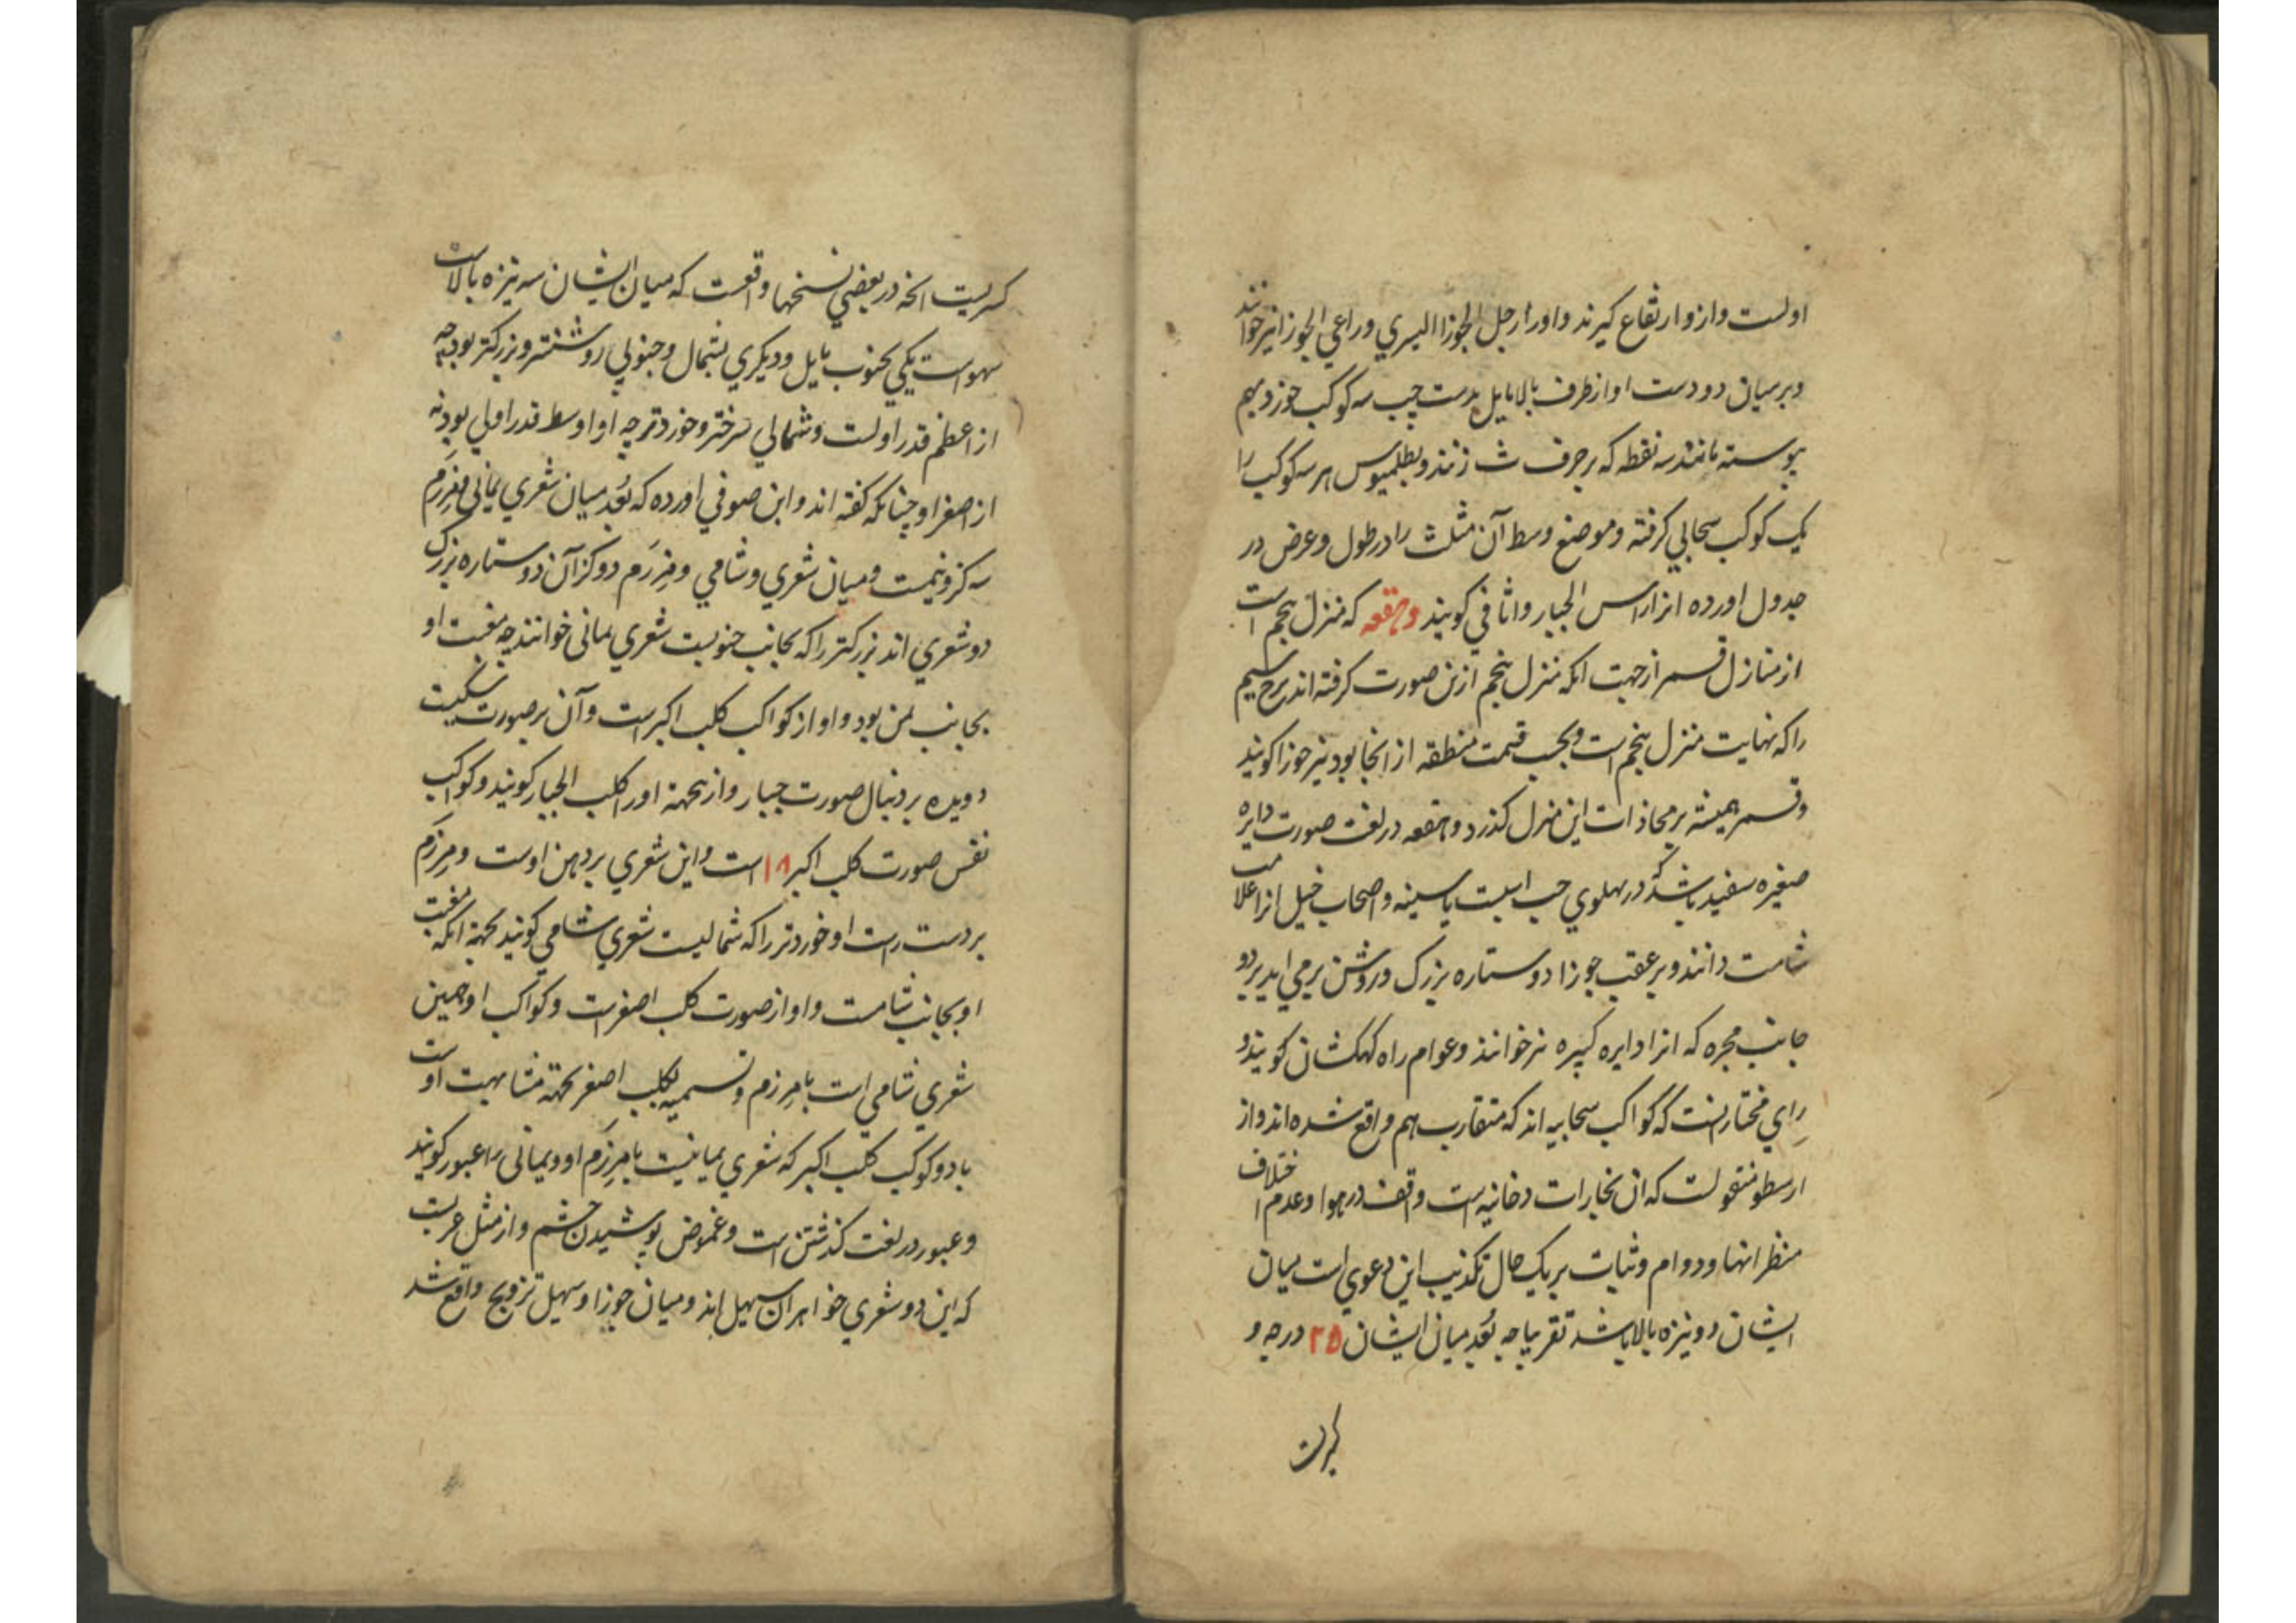 اولست وازو ارتفاع کیرند واورا رجل الجوزا الیسري وراعي الجوزا نیز خوانند
وبر میان دو دست او از طرف بالا مایل بدست چپ سه کوکب خورد بهم
پیوسته مانند سه نقطه که بر حرف ث زنند وبطلمیوس هر سه کوکب را
یک کوکب سحابي کرفته وموضع وسط آن مثلث را در طول وعرض در
جدول اورده انرا راس الجبار واثافي کویند وهقعه که منزل پنجم است
از منازل قمر از جهت انکه منزل پنجم ازین صورت کرفته اند برج سیم
را که نهایت منزل پنجم است وبحسب قسمت منطقه از انجا بود نیز جوزا کویند
وقمر همیشه بر محاذات این منزل کذرد وهقعه در لغت صورت دایره
صغیره سفید باشد که در پهلوي چپ اسبست یا سینه واصحاب خیل انرا علامت
شامت دانند وبر عقب جوزا دو ستاره بزرک وروشن برمي اید بر دو
جانب مجره که انرا دایره کبیره نیز خوانند وعوام راه کهکشان کویند و
رِاي مختار انست که کواکب سحابیه اند که متقارب هم واقع شده اند واز
ارسطو منقولست که ان بخارات دخانیه است واقف در هوا وعدم اختلاف
منظر انها ودوام وثبات بر یک حال تکذیب این دعوي است میان
ایشان دو نیزه بالا باشد تقریبا چه بُعد میان ایشان ۲۵ درجه و
کسریست
کسریست انخه در بعضي نسخها واقعست که میان ایشان سه نیزه بالاست
سهو است یکي بجنوب مایل ودیکري بشمال وجنوبي روشنتر وبزرکتر بود چه
از اعظم قدر اولست وشمالي سرختر وخوردتر چه او اوسط قدر اولي بود نه
از اصغر او چنانکه کفته اند وابن صوفي اورده که بُعد میان شعري یماني ومِرزَم
سه کز ونیمست ومیان شعري وشامي ومِرزَم دو کز آن دو ستاره بزرک
دو شعري اند بزرکتر را که بجانب جنوبست شعري یماني خوانند چه مغیب او
بجانب یمن بود واو از کواکب کلب اکبر است وآن بر صورت سکیست
دویده بر دنبال صورت جبار وازینجهة اورا کلب الجبار کویند وکواکب
نفس صورت کلب اکبر ۱۸ است واین شعري بر دهن اوست ومِرزَم
بر دست راست او خوردتر را که شمالیست شعري شامي کویند بجهة انکه مغیب
او بجانب شامست واو از صورت کلب اصغر است وکواکب او همین
شعري شامي است با مِرزم وتسمیه بکلب اصغر بجهة مشابهت اوست
با دو کوکب کلب اکبر که شعري یمانیست با مِرزَم او ویماني را عبور کویند
وعبور در لغت کذشتن است وغموض پوشیدن چشم واز مثل عربست
که این دو شعري خواهران سهیل اند ومیان جوزا وسهیل تزویج واقع شد